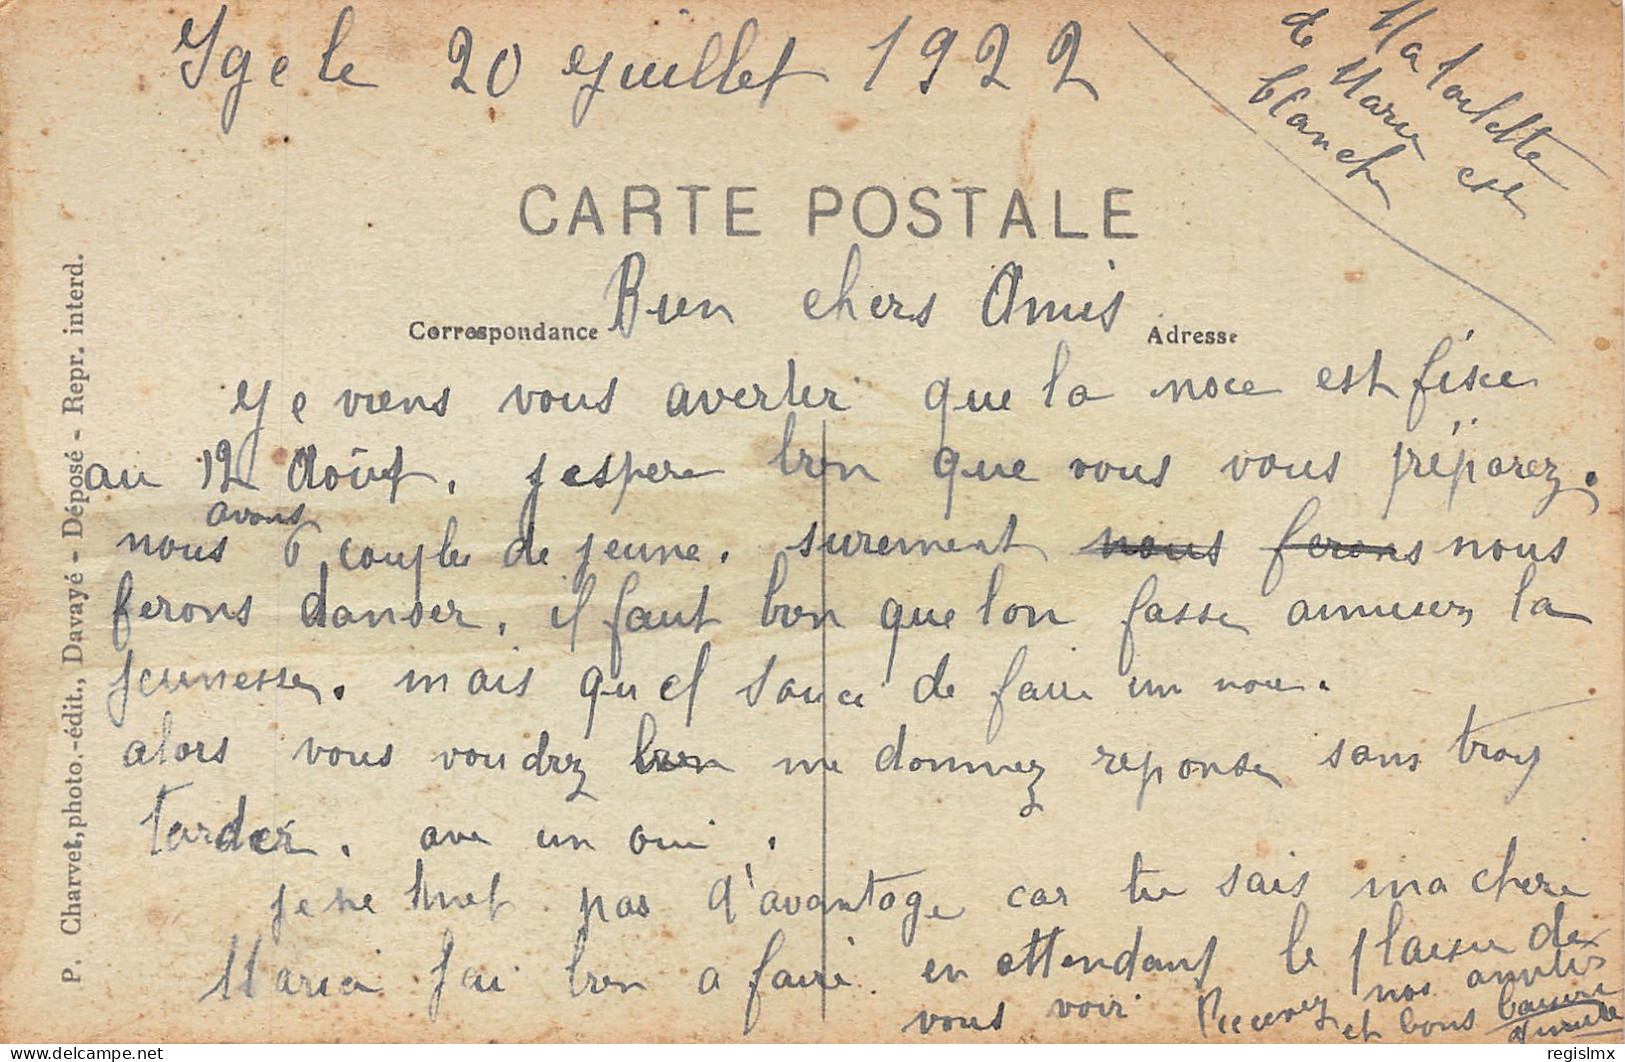 Ige le 20 Juillet 1922
Ma toilette
de Marie est
blanche
CARTE POSTALE
Bien chers Amis
Correspondance
Adresse
Je viens vous averter que la noce est fisée
au 12 Août. j'espere bien que vous vous préparez.
avons
nous 6 couples de jeune. surement nous ferons nous
ferons danser, il faut bien que lon fasse amuser la
jeunesse. mais quel souci de faire un noce.
alors vous voudrez bien me donnez reponse sans trop
tarder. ave un oui.
je ne met pas d'avantage car tu sais ma chere
Maria J'ai bien a faire. en attendant le plaisir de
vous voir Recevez nos amitiés
et bons baisers
P. Charvet, photo.-édit., Davayé - Déposé - Repr. interd.
regislmx
delcampe.net